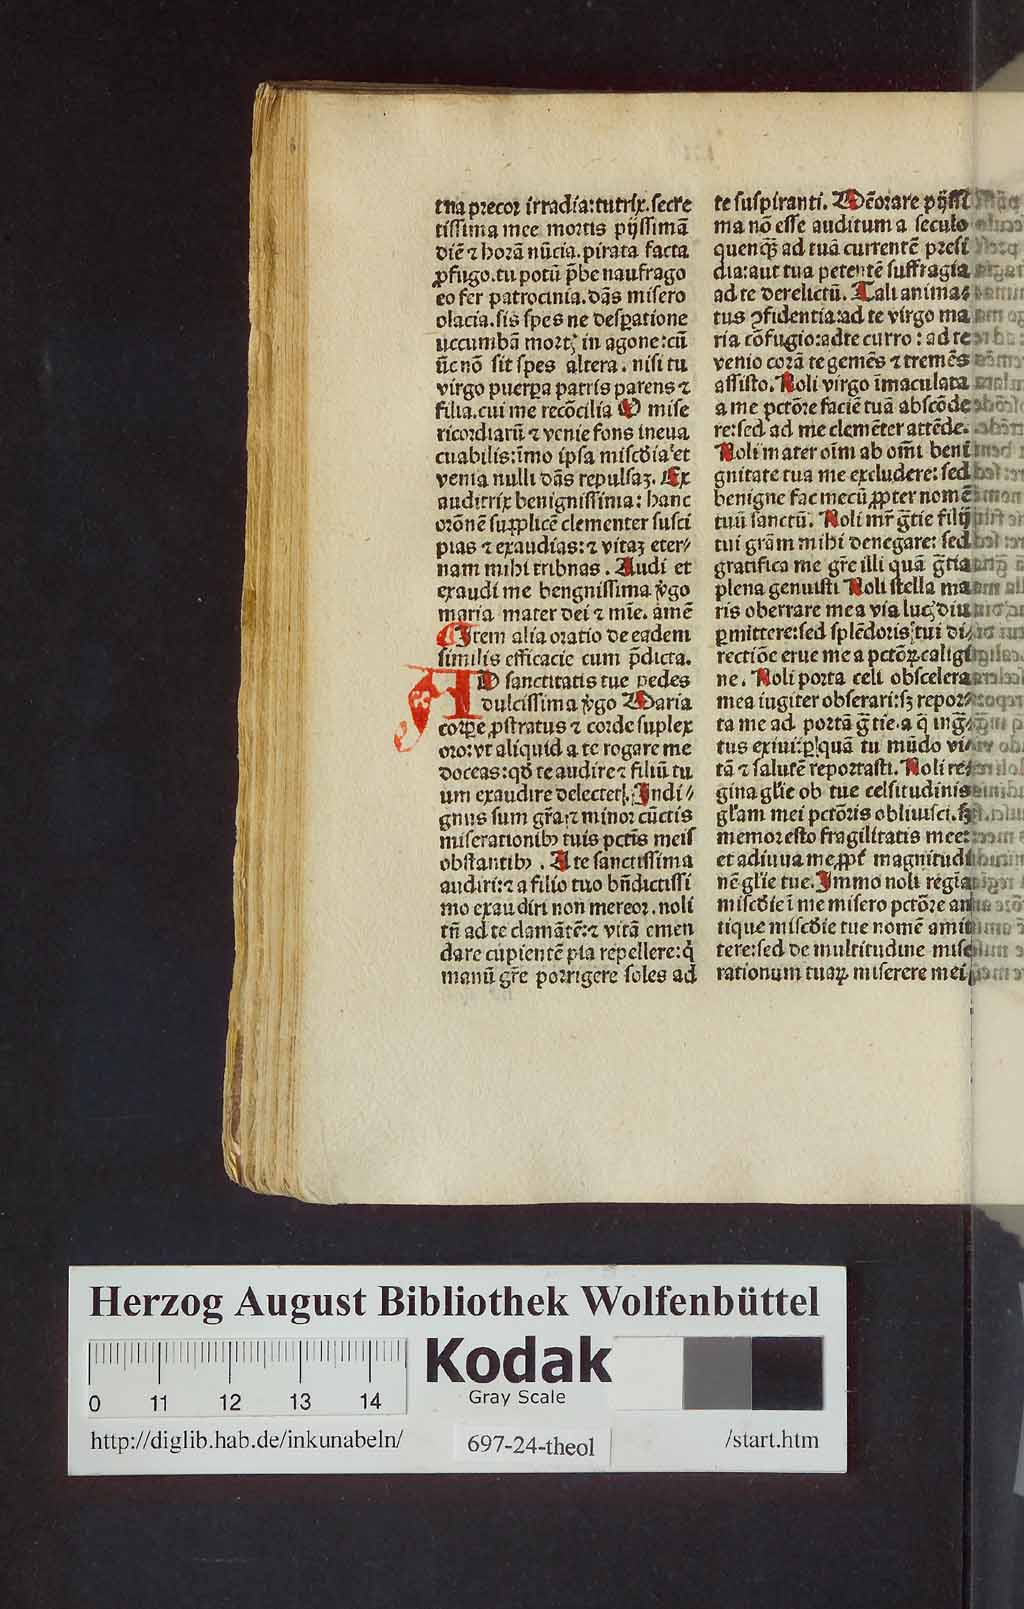 tua precor irradia:tutrix.secre
tissima mee mortis pijssimā
diē ⁊ horā nūcia.pirata facta
ꝓfugo.tu potū p̄be naufrago
eo fer patrocinia.dās misero
olacia.sis spes ne desꝑatione
uccumbā mortꝫ in agone:cū
ūc nō sit spes altera. nisi tu
virgo puerꝑa patris parens ⁊
filia.cui me recōcilia O mise
ricordiarū ⁊ venie fons ineua
cuabilis:īmo ipsa misc̄dia et
venia nulli dās repulsaꝫ. Ex
auditrix benignissima: hanc
orōnē supplicē clementer susci
pias ⁊ exaudias:⁊ vitaꝫ eter⸗
nam mihi tribuas. Audi et
exaudi me bengnissima v̄go
maria mater dei ⁊ mīe. amē
Item alia oratio de eadem
similis efficacie cum p̄dicta.
AD sanctitatis tue pedes
dulcissima v̄go Maria
corꝑe ꝓstratus ⁊ corde suplex
oro:vt aliquid a te rogare me
doceas:qd̄ te audire ⁊ filiū tu
um exaudire delectet. Indi⸗
gnus sum gr̄a:⁊ minor cūctis
miserationibꝰ tuis pctīs meis
obstantibꝰ. A te sanctissima
audiri:⁊ a filio tuo bn̄dictissi
mo exaudiri non mereor.noli
tn̄ ad te clamātē:⁊ vitā emen
dare cupientē pia repellere:q̄
manū gr̄e porrigere soles ad
te suspiranti. Mēorare pijssi
ma nō esse auditum a seculo
quenqꝫ ad tuā currentē presi
dia:aut tua petentē suffragia
ad te derelictū. Tali anima⸗
tus ꝯfidentia:ad te virgo ma
ria cōfugio:ad te curro: ad te
venio corā te gemēs ⁊ tremēs
assisto. Noli virgo īmaculata
a me pctōre faciē tuā abscōde
re:sed ad me clemēter attēde.
Noli mater oīm ab om̄i beni
gnitate tua me excludere: sed
benigne fac mecū ꝓpter nomē
tuū sanctū. Noli mr̄ gr̄tie filij
tui grām mihi denegare: sed
gratifica me gr̄e illi quā gr̄tia
plena genuisti Noli stella ma
ris oberrare me a via lucꝫ diu
ꝑmittere:sed splēdoris tui di⸗
rectiōe erue me a pctōꝝ caligi
ne. Noli porta celi obscelera
mea iugiter obserari:sꝫ repor⸗
ta me ad portā gr̄tie.a q̄ ingr̄⸗
tus exiui:ꝑ quā tu mūdo vi⸗
tā ⁊ salutē reportasti. Noli re⸗
gina gl̄ie ob tue celsitudinis
gl̄am mei pctōris obliuisci.sꝫ
memor esto fragilitatis mee:
et adiuua me ꝓpt̄ magnitudi
nē gl̄ie tue. Immo noli regīa
misc̄die ī me misero pctōre an
tique misc̄die tue nomē amit
tere:sed de multitudine mise
rationum tuaꝝ miserere mei
Herzog August Bibliothek Wolfenbüttel
Kodak
Gray Scale
0 11 12 13 14
http://diglib.hab.de/inkunabeln/
697-24-theol
/start.htm